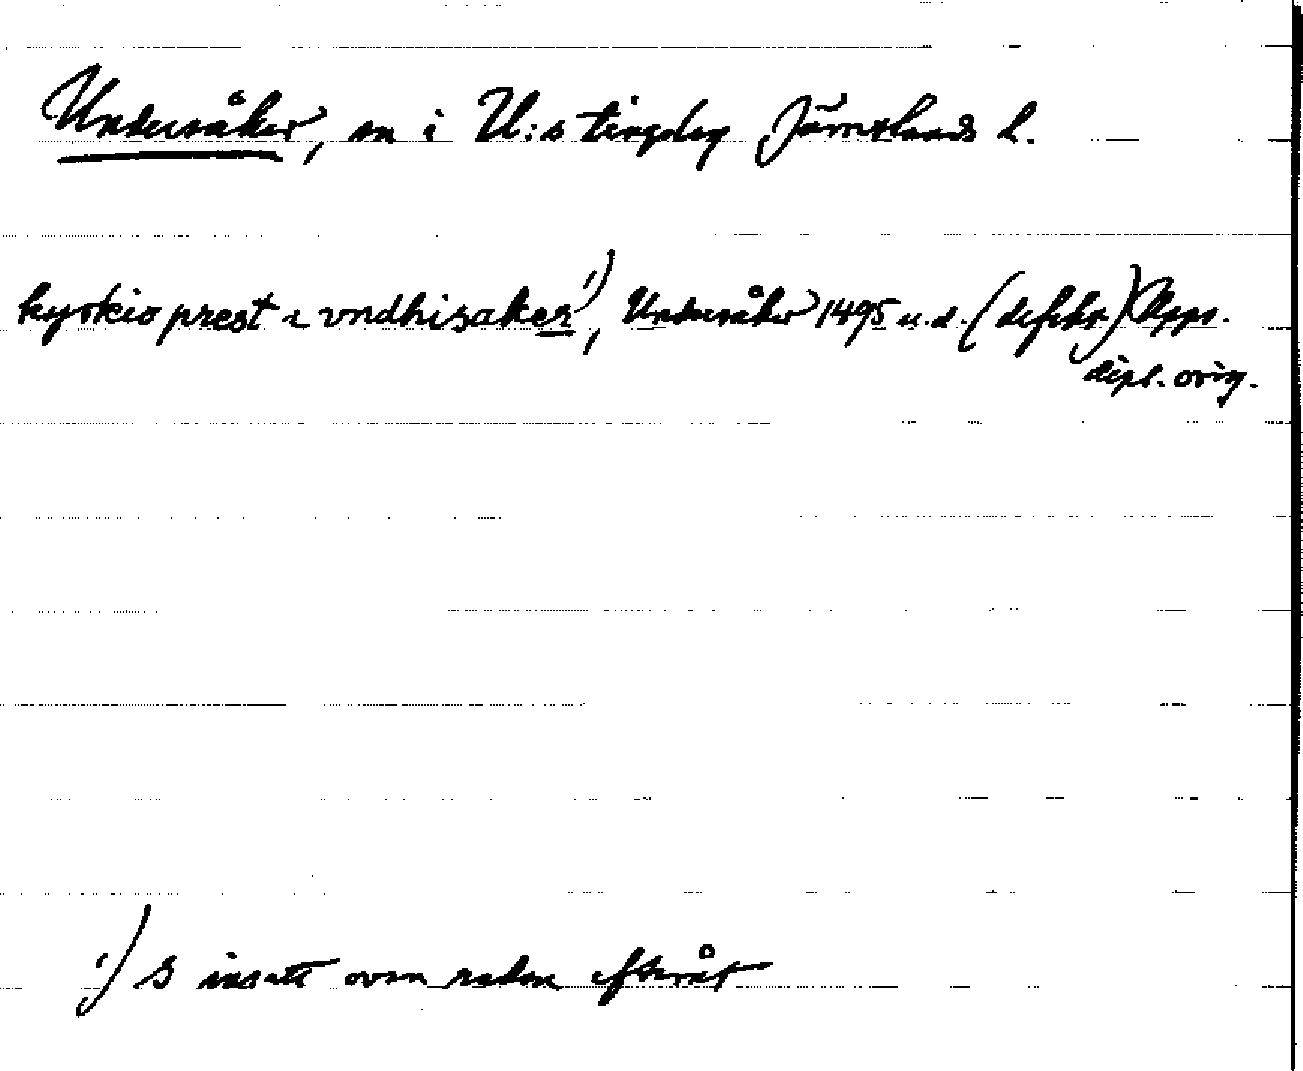 Undersåker, sn i U:s tingslag Jämtlands l.
kyrkio prest i vndhisaker 1), Undersåker 1495 u.d. (defekt) Upps.
dipl. orig.
1) s insatt ovan raden efteråt